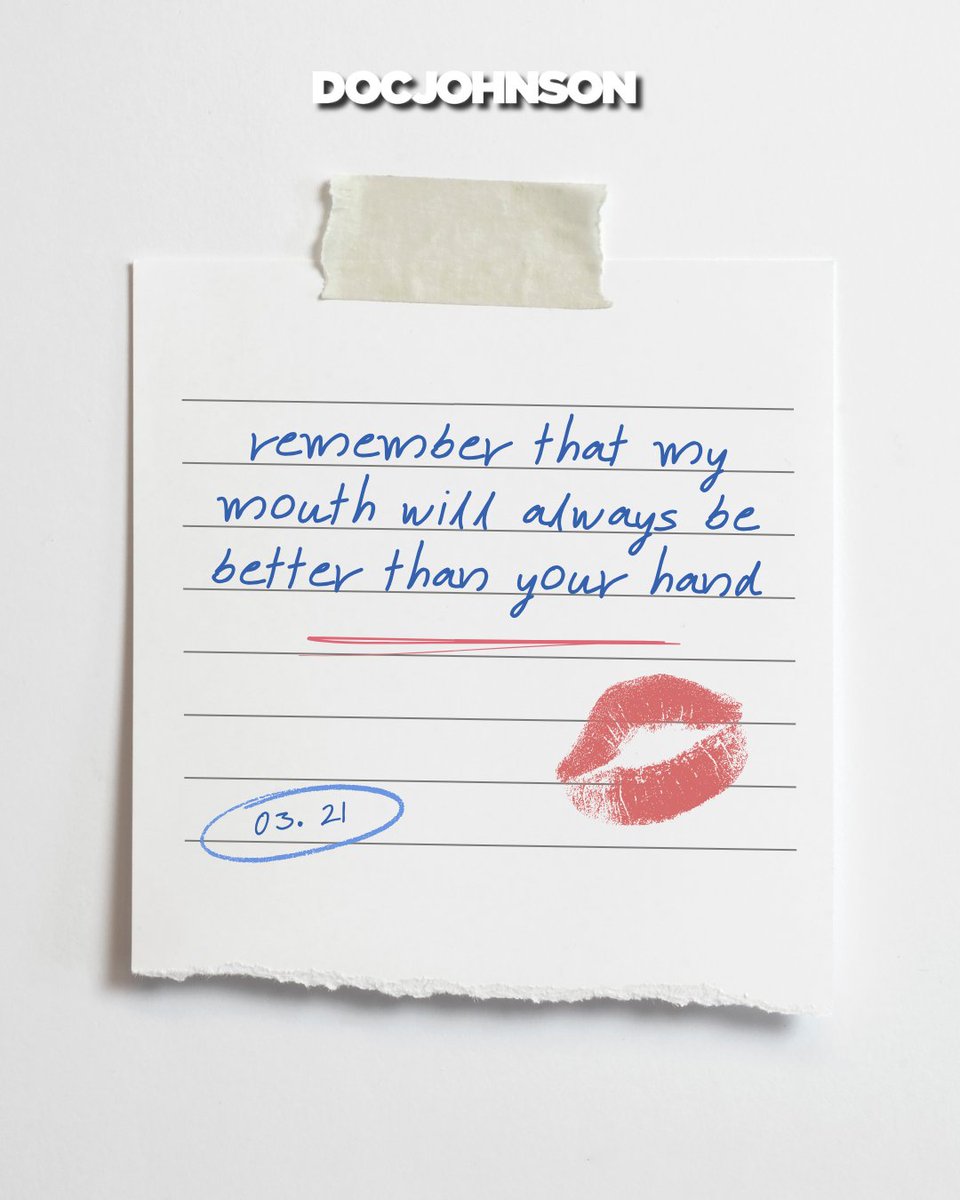 DOCJOHNSON
remember that my
mouth will always be
better than your hand
03. 21